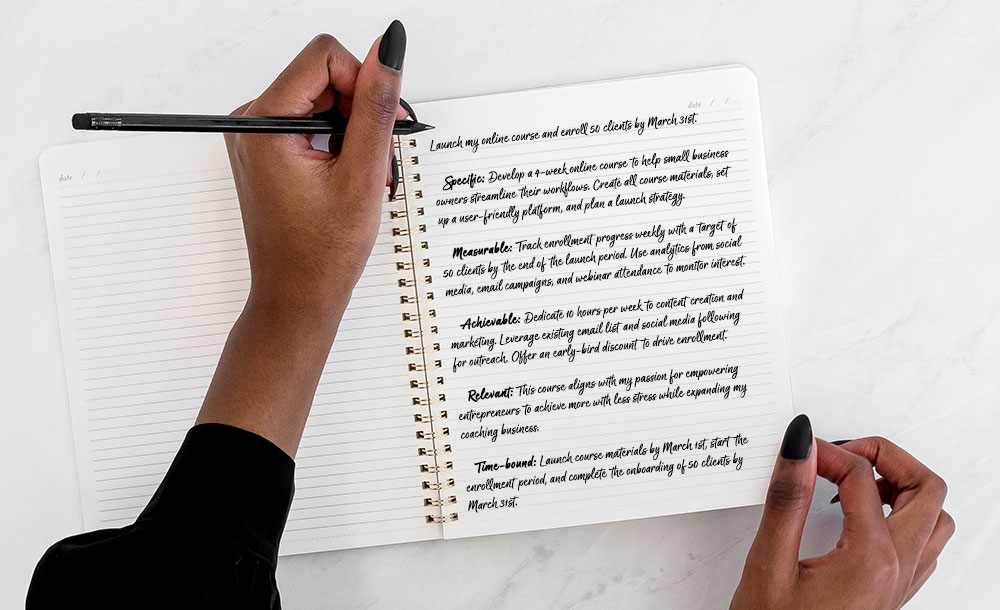 date / /
date / /
Launch my online course and enroll 50 clients by March 31st.
Specific: Develop a 4-week online course to help small business
owners streamline their workflows. Create all course materials, set
up a user-friendly platform, and plan a launch strategy.
Measurable: Track enrollment progress weekly with a target of
50 clients by the end of the launch period. Use analytics from social
media, email campaigns, and webinar attendance to monitor interest.
Achievable: Dedicate 10 hours per week to content creation and
marketing. Leverage existing email list and social media following
for outreach. Offer an early-bird discount to drive enrollment.
Relevant: This course aligns with my passion for empowering
entrepreneurs to achieve more with less stress while expanding my
coaching business.
Time-bound: Launch course materials by March 1st, start the
enrollment period, and complete the onboarding of 50 clients by
March 31st.